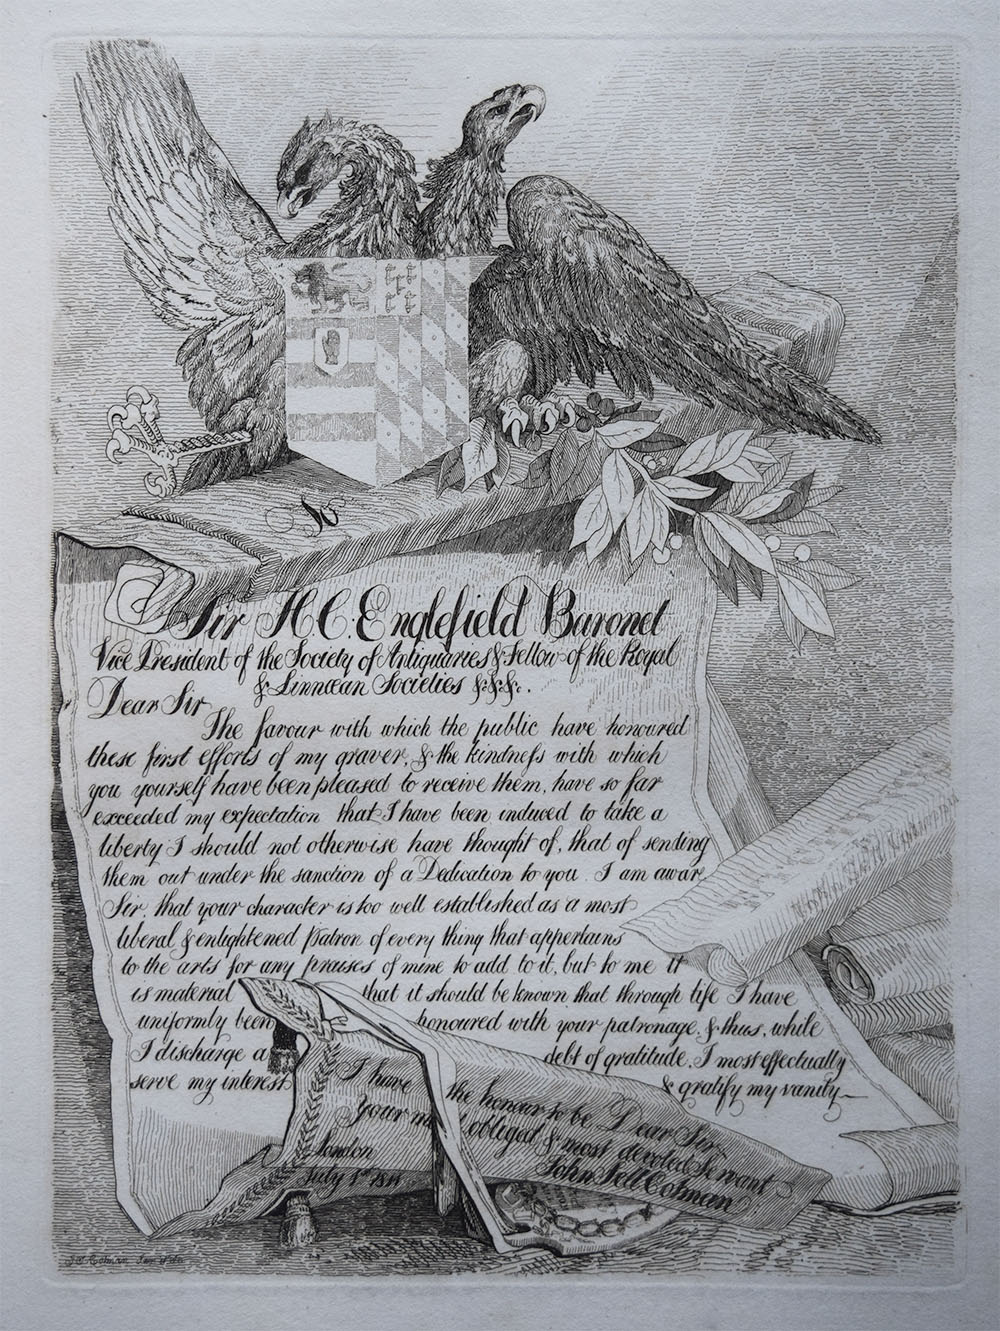 Sir H.C. Englefield Baronet
Vice President of the Society of Antiquaries & Fellow of the Royal
& Linnœan Societies &.&.&.
Dear Sir
The favour with which the public have honoured
these first efforts of my graver, & the kindness with which
you yourself have been pleased to receive them, have so far
exceeded my expectation that I have been induced to take a
liberty I should not otherwise have thought of, that of sending
them out under the sanction of a Dedication to you. I am aware
Sir, that your character is too well established as a most
liberal & enlightened patron of every thing that appertains
to the arts for any praises of mine to add to it, but to me it
is material that it should be known that through life I have
uniformly been honoured with your patronage, & thus, while
I discharge a debt of gratitude, I most effectually
serve my interest & gratify my vanity—
I have the honour to be Dear Sir,
your obliged & most devoted Servant
John Sell Cotman
London
July 1st 1811
J. S. Cotman